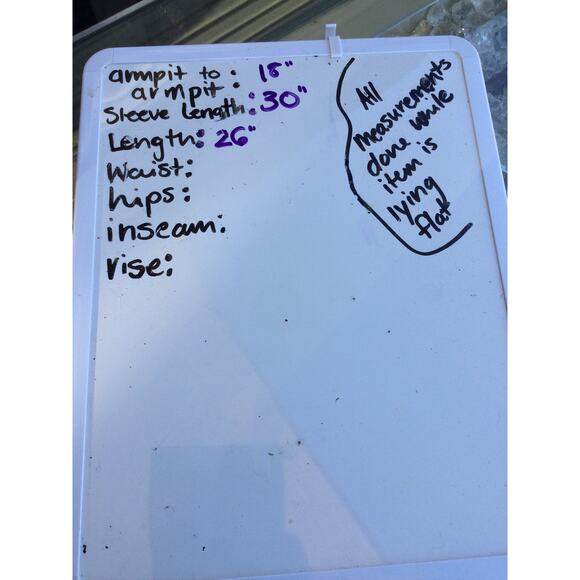 armpit to : 18"
armpit :
Sleeve Length: 30"
Length: 26"
Waist:
hips:
inseam:
rise:
All
measurements
done while
item is
lying
flat